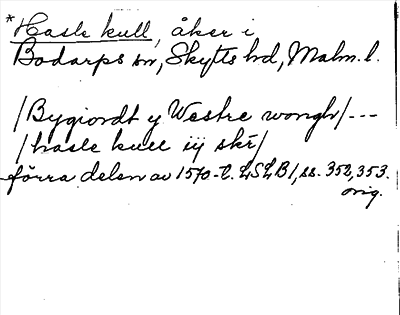 *Hasle kull, åker i
Bodarps sn, Skytts hd, Malm. l.
/Bygiordt y Westre wongh/---
/hasle kull iij skr/
förra delen av 1570-t. LSLB/, ss. 352, 353.
orig.